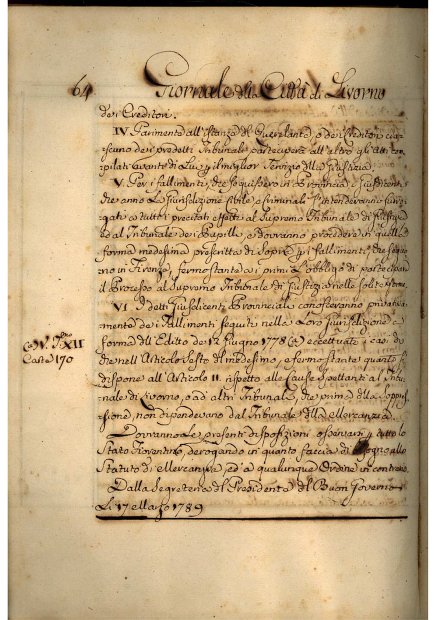 64 Giornale della Città di Livorno
dei Creditori.
IV. Parimente all'istanza del Querelante, o dei Creditori cia-
scuno dei predetti Tribunale parteciperà all'altro gli atti com-
pilati avanti di Lui p il miglior servizio della Giustizia;
V. Per i fallimenti, che seguissero in Provincia i Giusdicenti,
che anno la Giurisdizione Civile, o Criminale s'intenderanno surro-
gati a tutti i precitati effetti al Supremo Tribunale di Giustizia
ed al Tribunale dei Pupilli, e dovranno procedere in quella
forma medesima prescritta di sopra p i fallimenti, che seguo-
no in Firenze, ferma stante a i primi l'obbligo di partecipare
il Processo al Supremo Tribunale di Giustizia nelle solite forme.
VI. I detti Giusdicenti Provinciali conosceranno privativa-
mente dei Fallimenti seguiti nella Loro Giurisdizione a
forma dell'Editto de' 12 Giugno 1778 eccettuati i casi di
che nell'Articolo Sesto del medesimo, e ferma stante quanto si
dispone all'Articolo II. rispetto alle Cause spettanti al Tribu-
nale di Livorno, o ad altri Tribunale, che prima della Soppres-
sione, non dipendevano dal Tribunale della Mercanzia.
Dovranno le presenti disposizioni osservarsi p tutto lo
Stato Fiorentino, derogando in quanto faccia di bisogno allo
Statuto di Mercanzia, ed a qualunque Ordine in contrario.
Dalla Segreteria del Presidente del Buon Governo
Li 17 Marzo 1789
XII
Carte 170